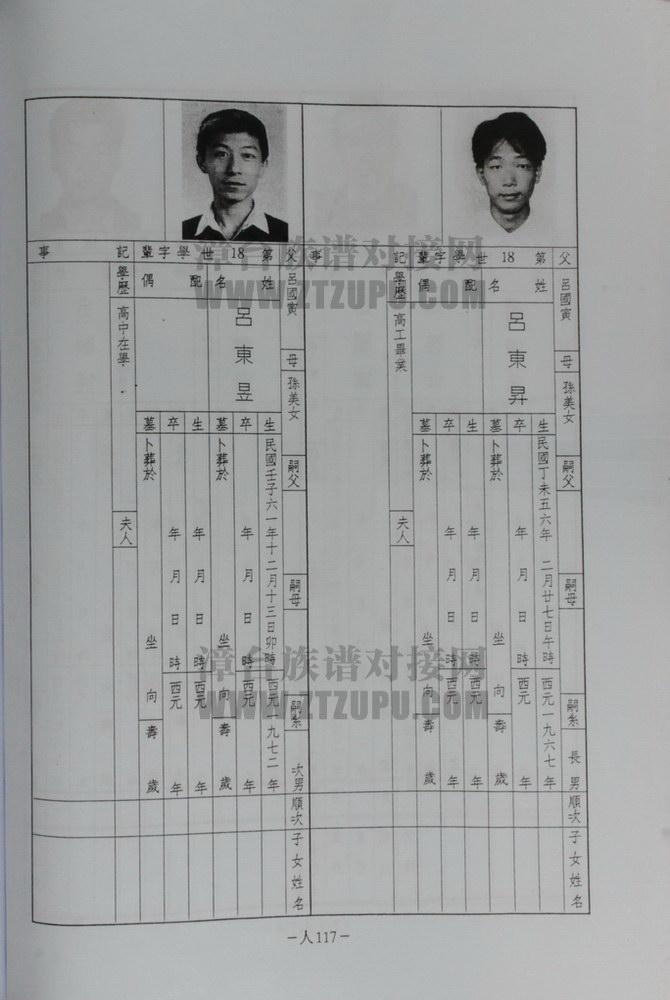 父 呂國寅 母 孫美女 嗣父 嗣母 嗣系 長男 順次 子女姓名
第18世學字輩
姓名 呂東昇
配偶
生 民國丁未五六年 二月廿七日午時 西元一九六七年
卒 年月日時 西元 年
墓 卜葬於 坐向 壽 歲
生 年月日時 西元 年
卒 年月日時 西元 年
墓 卜葬於 坐向 壽 歲
記事
學歷 高工畢業
夫人
父 呂國寅 母 孫美女 嗣父 嗣母 嗣系 次男 順次 子女姓名
第18世學字輩
姓名 呂東昱
配偶
生 民國壬子六一年十二月十三日卯時 西元一九七二年
卒 年月日時 西元 年
墓 卜葬於 坐向 壽 歲
生 年月日時 西元 年
卒 年月日時 西元 年
墓 卜葬於 坐向 壽 歲
記事
學歷 高中在學
夫人
漳台族谱对接网
WWW.ZTZUPU.COM
漳台族谱对接网
WWW.ZTZUPU.COM
－人117－